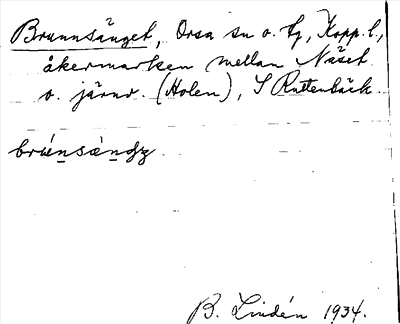 Brunnsänget, Orsa sn o. tg, Kopp. l,
åkermarken mellan Näset
o. järnv. (Holen), S Rattenbäck.
B. Lindén 1934.